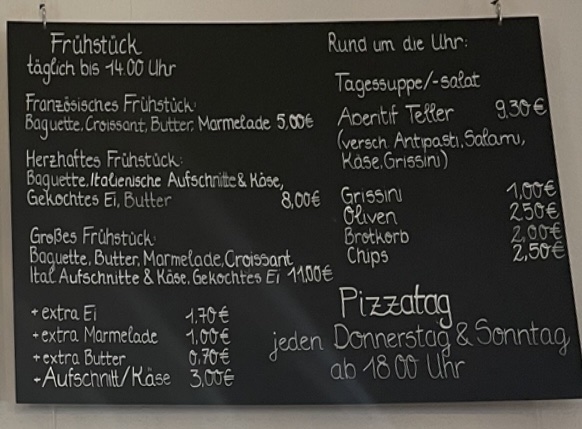 Frühstück
täglich bis 14.00 Uhr
Französisches Frühstück:
Baguette, Croissant, Butter, Marmelade 5,00€
Herzhaftes Frühstück:
Baguette, Italienische Aufschnitte & Käse,
Gekochtes Ei, Butter 8,00€
Großes Frühstück:
Baguette, Butter, Marmelade, Croissant
Ital. Aufschnitte & Käse, Gekochtes Ei 11,00€
+ extra Ei 1,70€
+ extra Marmelade 1,00€
+ extra Butter 0,70€
+ Aufschnitt/Käse 3,00€
Rund um die Uhr:
Tagessuppe/-salat
Aperitif Teller 9,30€
(versch. Antipasti, Salami,
Käse, Grissini)
Grissini 1,00€
Oliven 2,50€
Brotkorb 2,00€
Chips 2,50€
Pizzatag
jeden Donnerstag & Sonntag
ab 18.00 Uhr